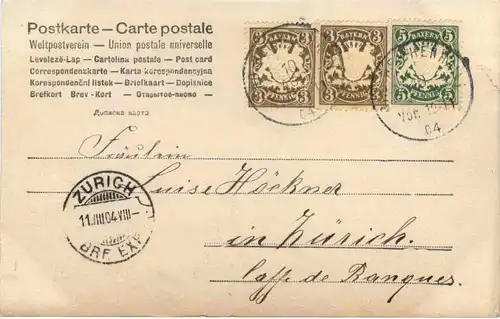 Postkarte – Carte postale
Weltpostverein – Union postale universelle
Levelező-Lap — Cartolina postale — Post card
Correspondenzkarte — Karta korespondencyjna
Korespondenční lístek — Briefkaart — Dopisnice
Brefkort Brev-Kort — Открытое-письмо —
Дописна карта
BAYERN
3 3
PFENNIG
BAYERN
3 3
PFENNIG
BAYERN
5 5
PFENNIG
04
Vor. 10-11
04
Fräulein
Luise Höckner
in Zürich.
Caffe de Banques.
ZÜRICH
11.III.04.VIII–
BRF. EXP.